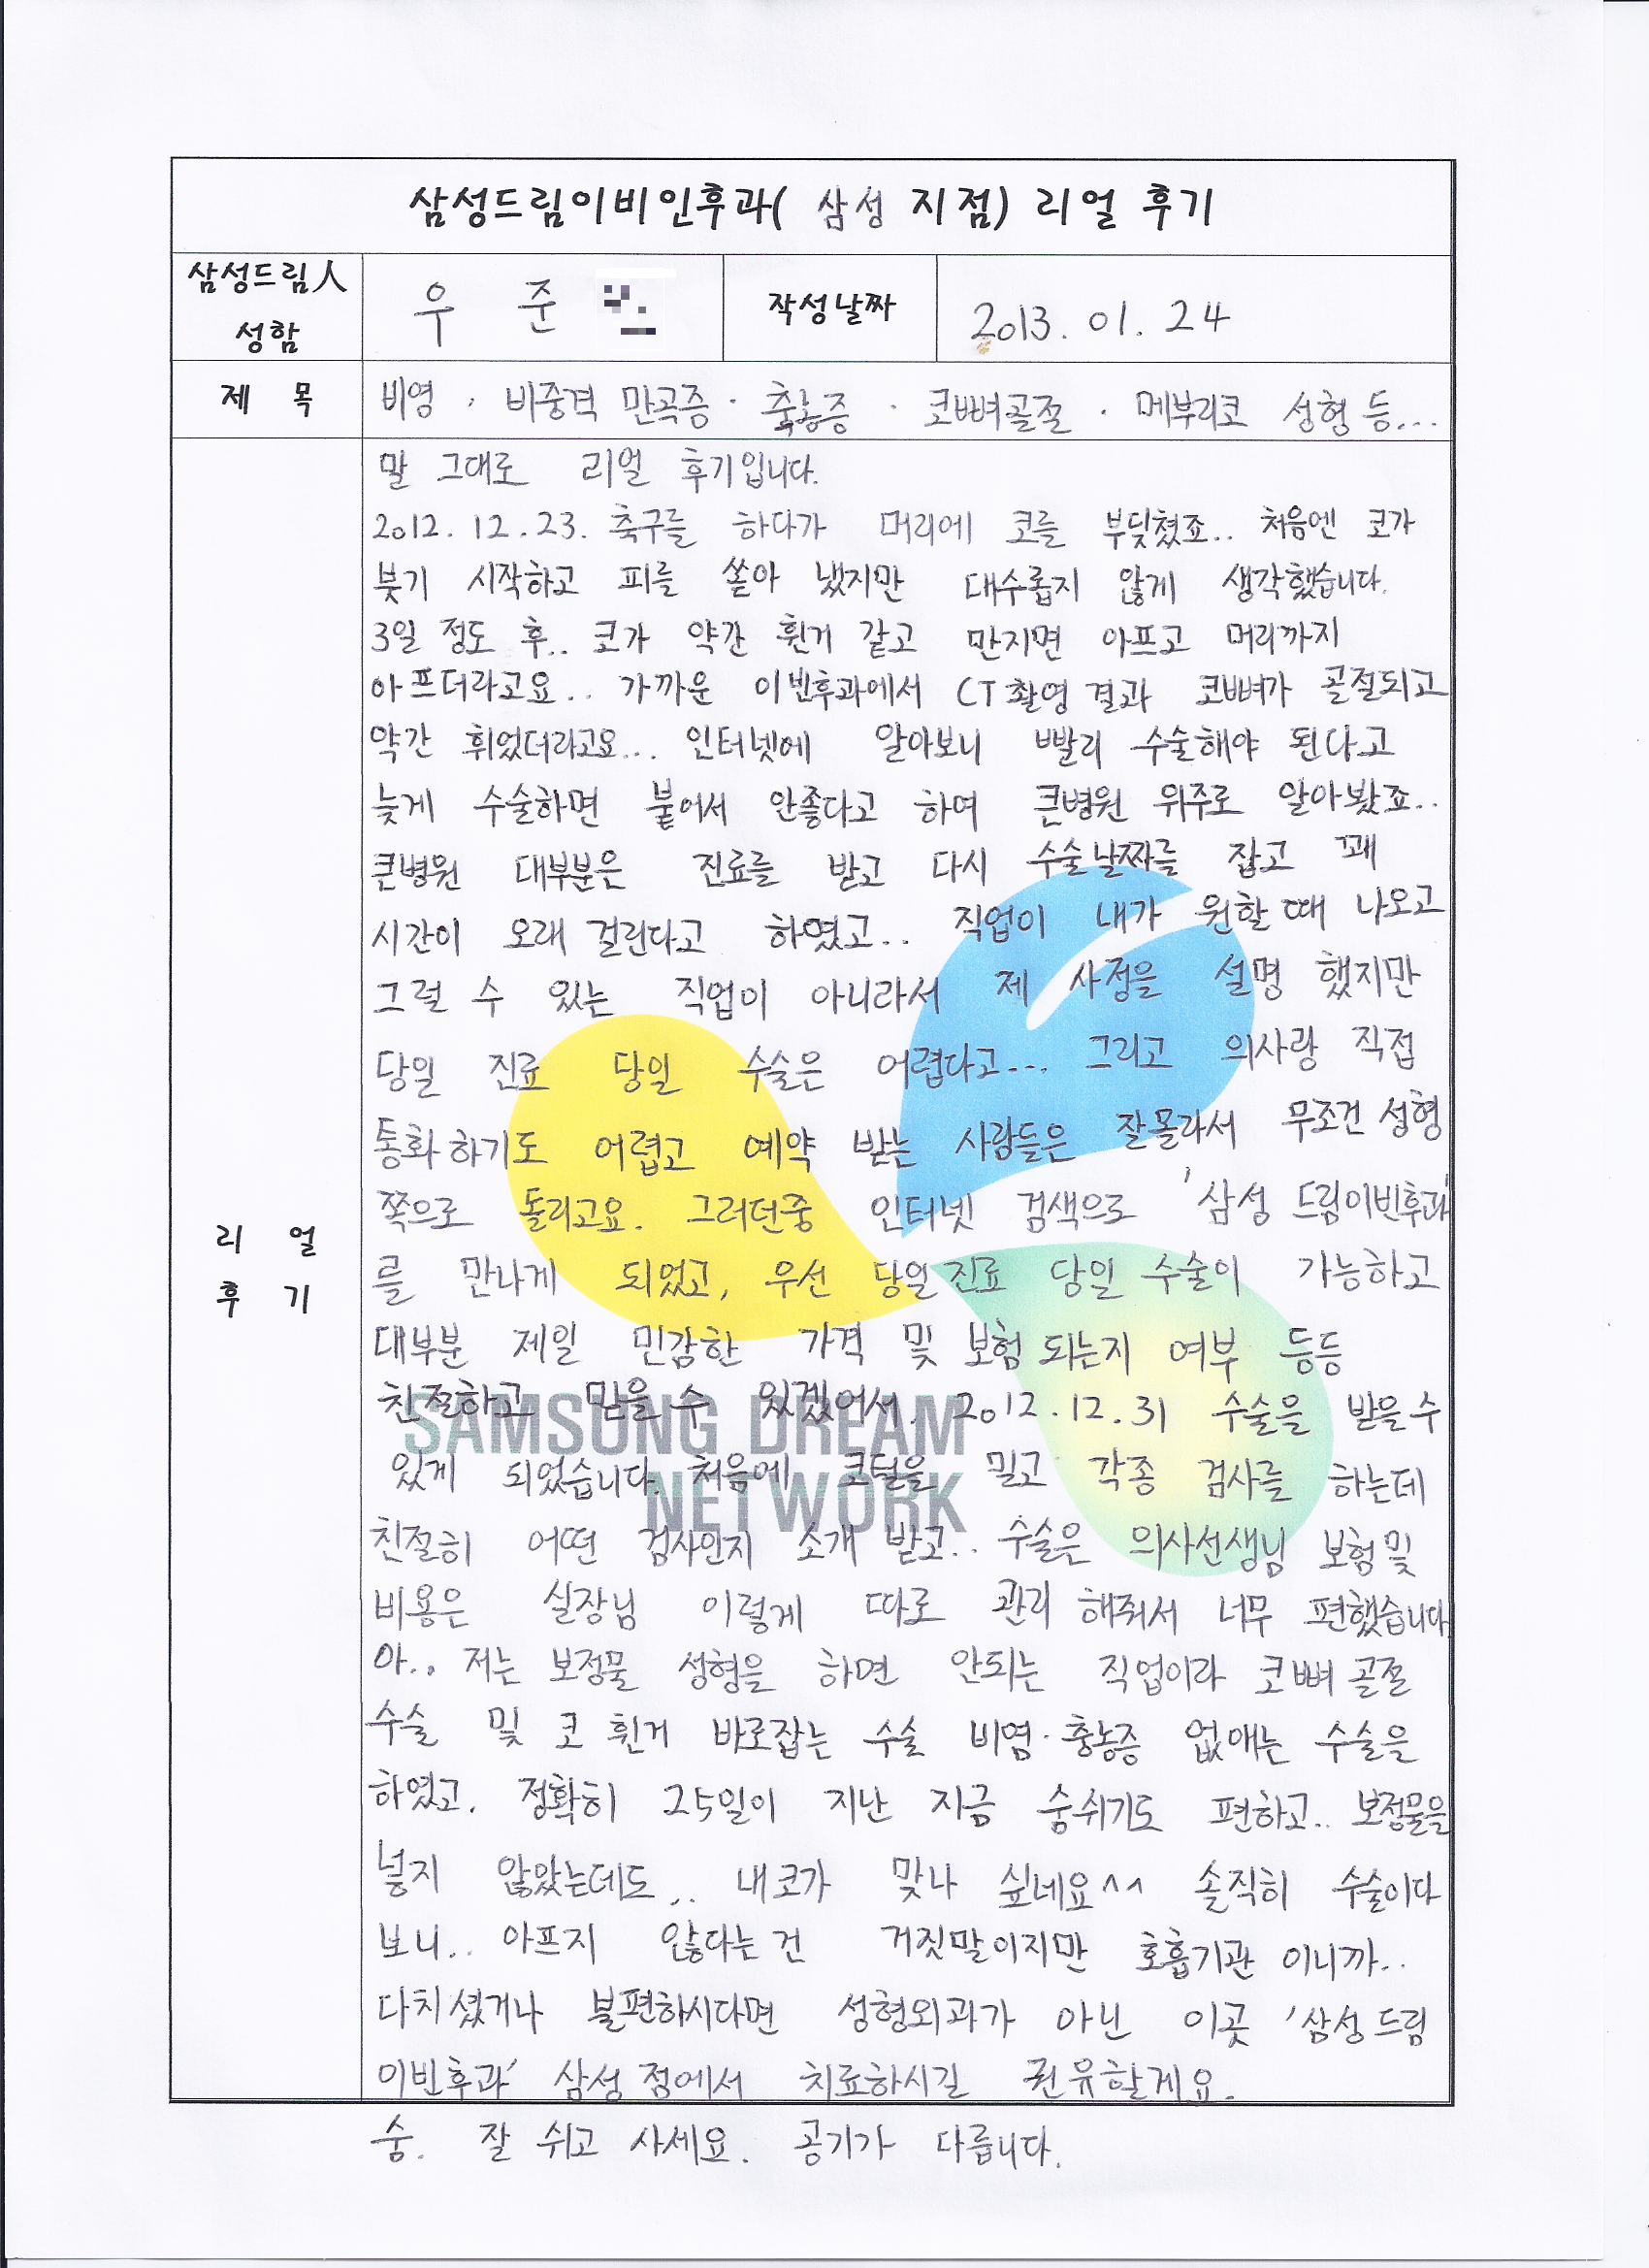 삼성드림이비인후과( 삼성 지점) 리얼 후기
삼성드림人
성함
우 준
작성날짜
2013. 01. 24
제 목
비영 · 비중격 만곡증 · 축농증 · 코뼈골절 · 메부리코 성형 등...
말 그대로 리얼 후기입니다.
2012. 12. 23. 축구를 하다가 머리에 코를 부딪쳤죠.. 처음엔 코가
붓기 시작하고 피를 쏟아 냈지만 대수롭지 않게 생각했습니다.
3일 정도 후.. 코가 약간 휜거 같고 만지면 아프고 머리까지
아프더라고요.. 가까운 이빈후과에서 CT 촬영 결과 코뼈가 골절되고
약간 휘었더라고요... 인터넷에 알아보니 빨리 수술해야 된다고
늦게 수술하면 붙어서 안좋다고 하여 큰병원 위주로 알아봤죠..
큰병원 대부분은 진료를 받고 다시 수술날짜를 잡고 꽤
시간이 오래 걸린다고 하였고.. 직업이 내가 원할때 나오고
그럴 수 있는 직업이 아니라서 제 사정을 설명 했지만
당일 진료 당일 수술은 어렵다고... 그리고 의사랑 직접
통화하기도 어렵고 예약 받는 사람들은 잘몰라서 무조건 성형
쪽으로 돌리고요. 그러던중 인터넷 검색으로 '삼성 드림이빈후과'
를 만나게 되었고, 우선 당일진료 당일 수술이 가능하고
대부분 제일 민감한 가격 및 보험 되는지 여부 등등
친절하고 믿을 수 있겠어서. 2012. 12. 31 수술을 받을수
있게 되었습니다. 처음에 코털을 밀고 각종 검사를 하는데
친절히 어떤 검사인지 소개 받고.. 수술은 의사선생님 보험및
비용은 실장님 이렇게 따로 관리 해줘서 너무 편했습니다
아.. 저는 보정물 성형을 하면 안되는 직업이라 코뼈 골절
수술 및 코 휜거 바로잡는 수술 비염·충농증 없애는 수술을
하였고. 정확히 25일이 지난 지금 숨쉬기도 편하고.. 보정물을
넣지 않았는데도.. 내코가 맞나 싶네요^^ 솔직히 수술이다
보니.. 아프지 않다는건 거짓말이지만 호흡기관 이니까..
다치셨거나 불편하시다면 성형외과가 아닌 이곳 '삼성드림
이빈후과' 삼성 점에서 치료하시길 권유할게요.
숨. 잘 쉬고 사세요. 공기가 다릅니다.
리 얼
후 기
SAMSUNG DREAM
NETWORK